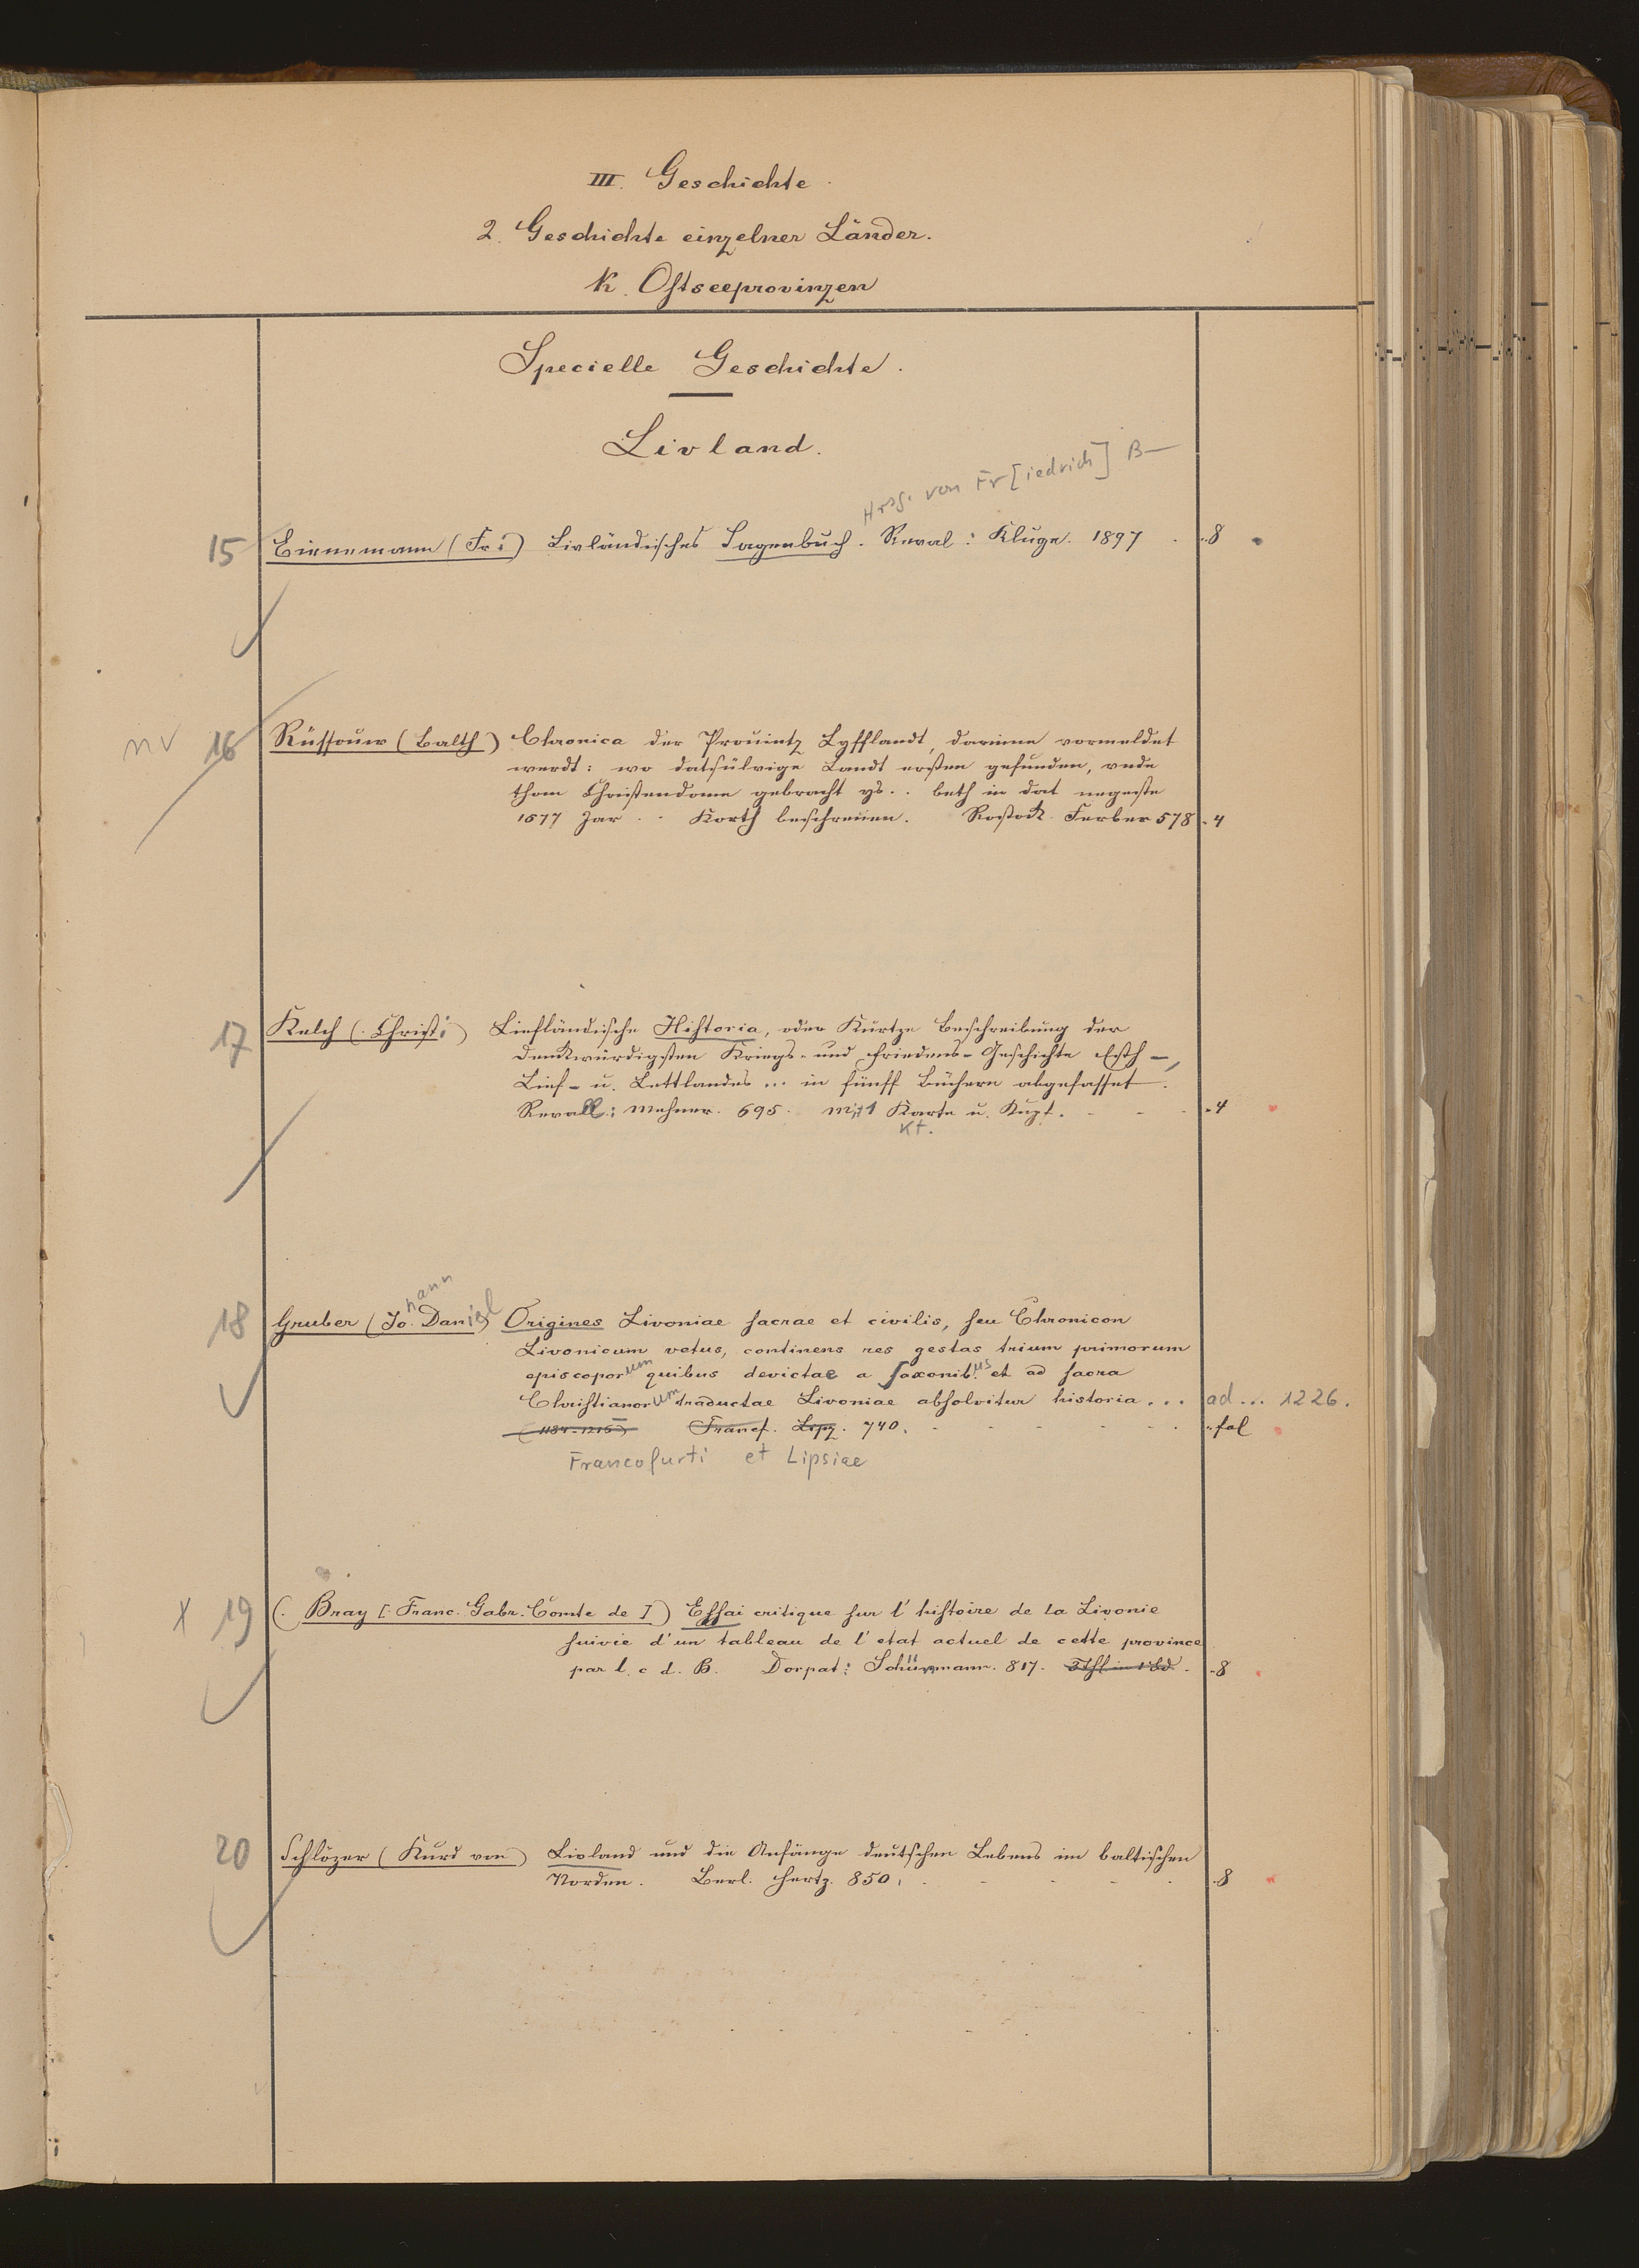 III. Geschichte.
2. Geschichte einzelner Länder.
K. Ostseeprovinzen
Specielle Geschichte.
Livland.
Hrsg. von Fr[iedrich] B—
15 Bienemann (Fr:) Livländisches Sagenbuch. Reval: Kluge. 1897 . . 8
nv 16 Rüssouw (Balth) Chronica der Prouintz Lyfflandt, darinne vormeldet
werdt: wo datsülvige Landt ersten gefunden, unde
thom Christendome gebracht ys . . beth in dat negeste
1577 Jar . . Korth beschreuen. Rostock. Ferber 578 . 4
17 Kelch (Christ:) Liefländische Historia, oder Kurtze Beschreibung der
Denkwürdigsten Kriegs- und Friedens-Geschichte Esth-,
Lief- u. Lettlandes ... in fünff Büchern abgefasset.
Revall: Mehner. 695. mit 1 Karte u. Kupf. - - . 4
Kt.
18 Gruber (Johann Daniel) Origines Livoniae sacrae et civilis, seu Chronicon
Livonicum vetus, continens res gestas trium primorum
episcoporum quibus devictae a Saxonibus et ad sacra
Christianorum traductae Livoniae absolvitur historia ... ad ... 1226.
Francf. Lipz. 740. - - - - . fol
Francofurti et Lipsiae
x 19 (Bray [Franc. Gabr. Comte de]) Essai critique sur l'histoire de la Livonie
suivie d'un tableau de l'etat actuel de cette province
par l. c. d. B. Dorpat: Schünmann. 817. 3 Thl. in 1 Bd. . 8
20 Schlözer (Kurd von) Livland und die Anfänge deutschen Lebens im baltischen
Norden. Berl. Hertz. 850. - - - . 8